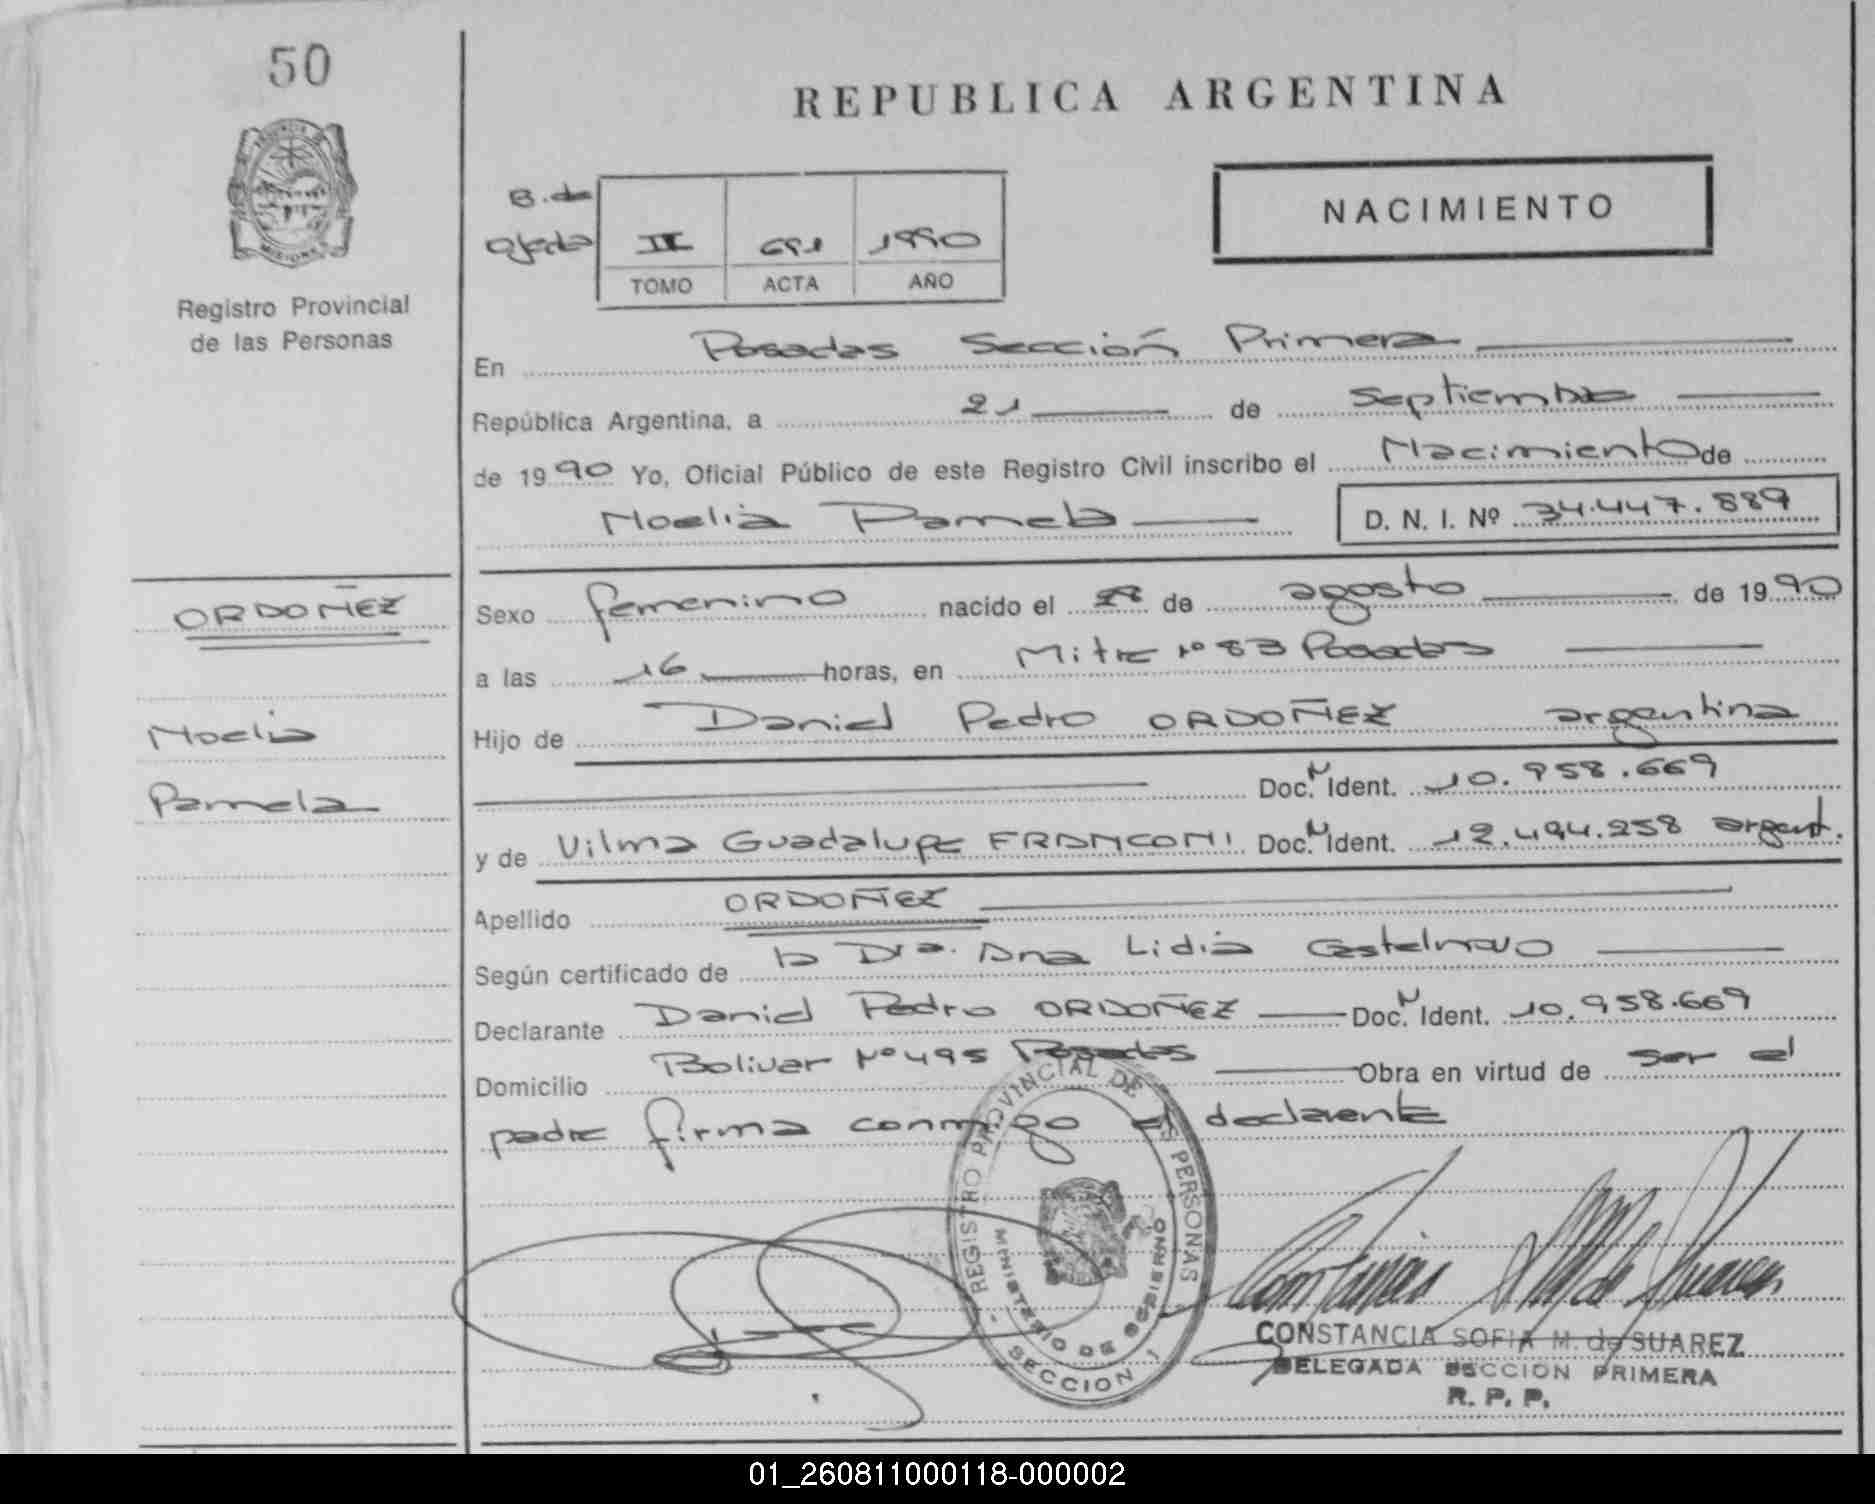 50
REPUBLICA ARGENTINA
Registro Provincial
de las Personas
B. de
Ojeda
II 691 1990
TOMO ACTA AÑO
NACIMIENTO
En Posadas Sección Primera
República Argentina, a 21 de Septiembre
de 1990 Yo, Oficial Público de este Registro Civil inscribo el Nacimiento de
Noelia Pamela D. N. I. Nº 34.447.889
ORDOÑEZ
Noelia
Pamela
Sexo femenino nacido el 28 de agosto de 1990
a las 16 horas, en Mitre Nº 83 Posadas
Hijo de Daniel Pedro ORDOÑEZ argentina
Doc. N Ident. 10.958.669
y de Vilma Guadalupe FRANCONI Doc. N Ident. 12.494.258 argent.
Apellido ORDOÑEZ
Según certificado de la Dra. Ana Lidia Castelnovo
Declarante Daniel Pedro ORDOÑEZ Doc. N Ident. 10.958.669
Domicilio Bolivar Nº 495 Posadas Obra en virtud de ser el
padre firma conmigo el declarante
REGISTRO PROVINCIAL DE LAS PERSONAS
MINISTERIO DE GOBIERNO
SECCION 1
CONSTANCIA SOFIA M. de SUAREZ
DELEGADA SECCION PRIMERA
R. P. P.
01_260811000118-000002